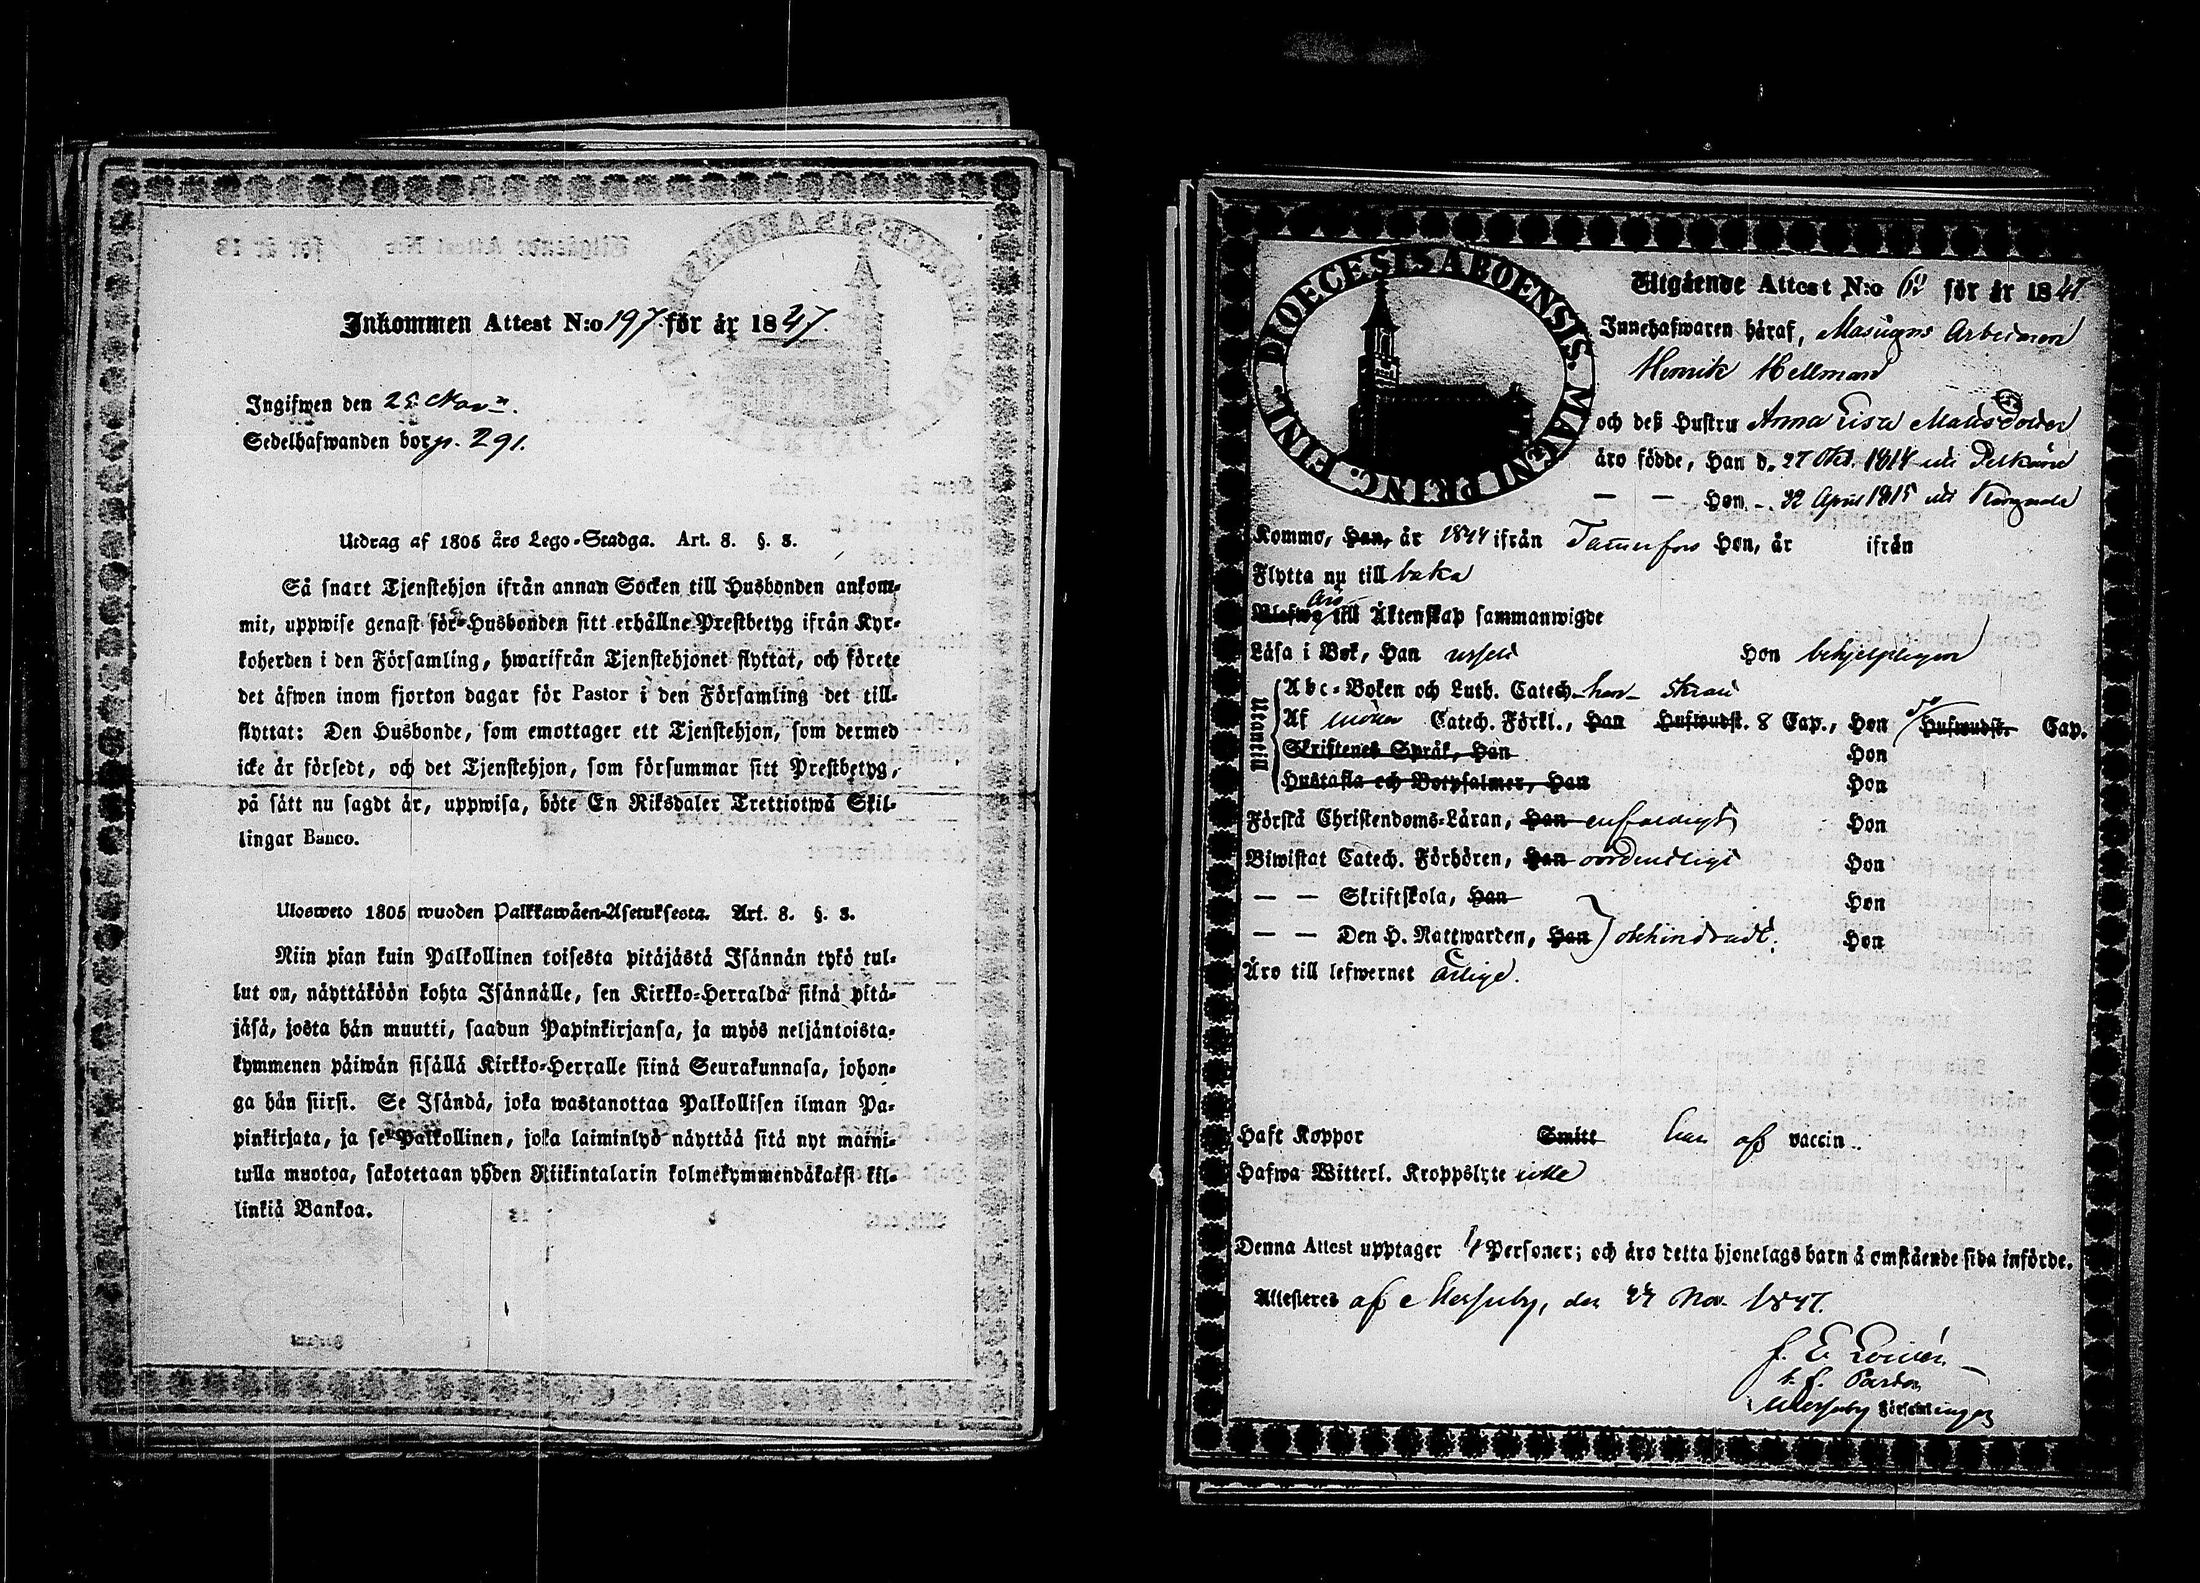 Inkommen Attest N:o 197 för år 1847.
Ingifwen den 25 Nov.
Sedelhafwanden bor p. 291.
Utdrag af 1805 års Lego-Stadga. Art. 8. §. 8.
Så snart Tjenstehjon ifrån annan Socken till Husbonden ankom-
mit, uppwise genast för Husbonden sitt erhållne Prestbetyg ifrån Kyr-
koherden i den Församling, hwarifrån Tjenstehjonet flyttat, och förete
det äfwen inom fjorton dagar för Pastor i den Församling det till-
flyttat: Den Husbonde, som emottager ett Tjenstehjon, som dermed
icke är försedt, och det Tjenstehjon, som försummar sitt Prestbetyg,
på sätt nu sagdt är, uppwisa, böte En Riksdaler Trettiotwå Skil-
lingar Banco.
Ulosweto 1805 wuoden Palkkawäen-Asetuksesta. Art. 8. §. 8.
Niin pian kuin Palkollinen toisesta pitäjästä Isännän tykö tul-
lut on, näyttäköön kohta Isännälle, sen Kirkko-Herralda siinä pitä-
jäsä, josta hän muutti, saadun Papinkirjansa, ja myös neljäntoista-
kymmenen päiwän sisällä Kirkko-Herralle siinä Seurakunnasa, johon-
ga hän siirsi. Se Isändä, joka wastanottaa Palkollisen ilman Pa-
pinkirjata, ja se Palkollinen, joka laiminlyö näyttää sitä nyt maini-
tulla muotoa, sakotetaan yhden Riikintalarin kolmekymmendäkaksi kil-
linkiä Bankoa.
DIOECESIS ABOENSIS. MAGNI PRINC. FINL.
Utgående Attest N:o 62 för år 1847
Innehafwaren häraf, Masugns Arbetaren
Henrik Hellman
och deß Hustru Anna Lisa Matts Dotter
äro födde, Han d. 27 Okt. 1814 uti Pelkäne
— — Hon - 22 April 1815 uti Kangasala
Kommo, Han, år 1844 ifrån Tammerfors Hon, år ifrån
Flytta nu tillbaka
äro
till Äktenskap sammanwigde
Läsa i Bok, Han Hon behjelpligen
Utantill
Abc-Boken och Luth. Catech.
Af Catech. Förkl., Han Hufwudst. 8 Cap., Hon Hufwudst. Cap.
Skriftenes Språk, Han Hon
Hustafla och Botpsalmer, Han Hon
Förstå Christendoms-Läran, Han enfaldigt Hon
Biwistat Catech. Förhören, Han ordentligt Hon
— — Skriftskola, Han Hon
— — Den H. Nattwarden, Han } obehindradt. Hon
Äro till lefwernet ärlige.
Haft Koppor Smitt af vaccin.
Hafwa Witterl. Kroppslyte icke
Denna Attest upptager 4 Personer; och äro detta hjonelags barn å omstående sida införde.
Attesteres af Messuby, den 24 Nov. 1847.
v. Pastor
Messuby Församlingen